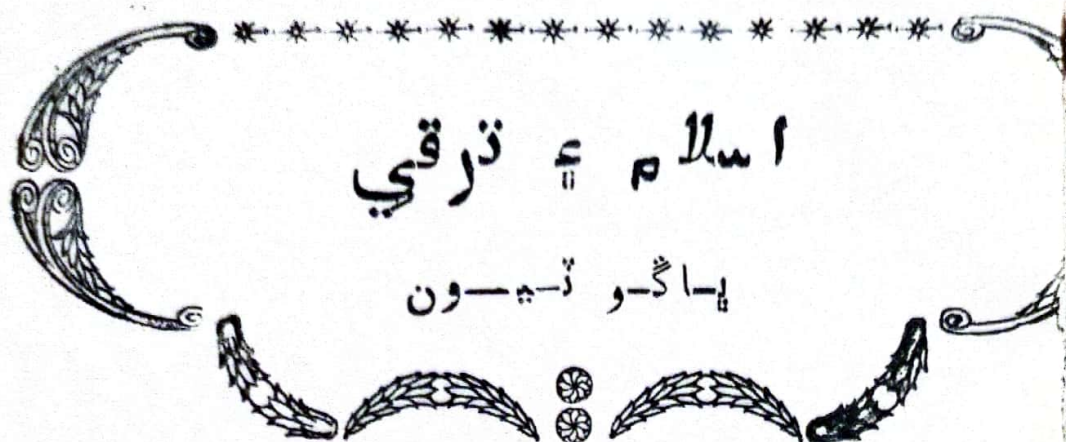 اسلام ۽ ترقي
ڀاڱو ٽيون